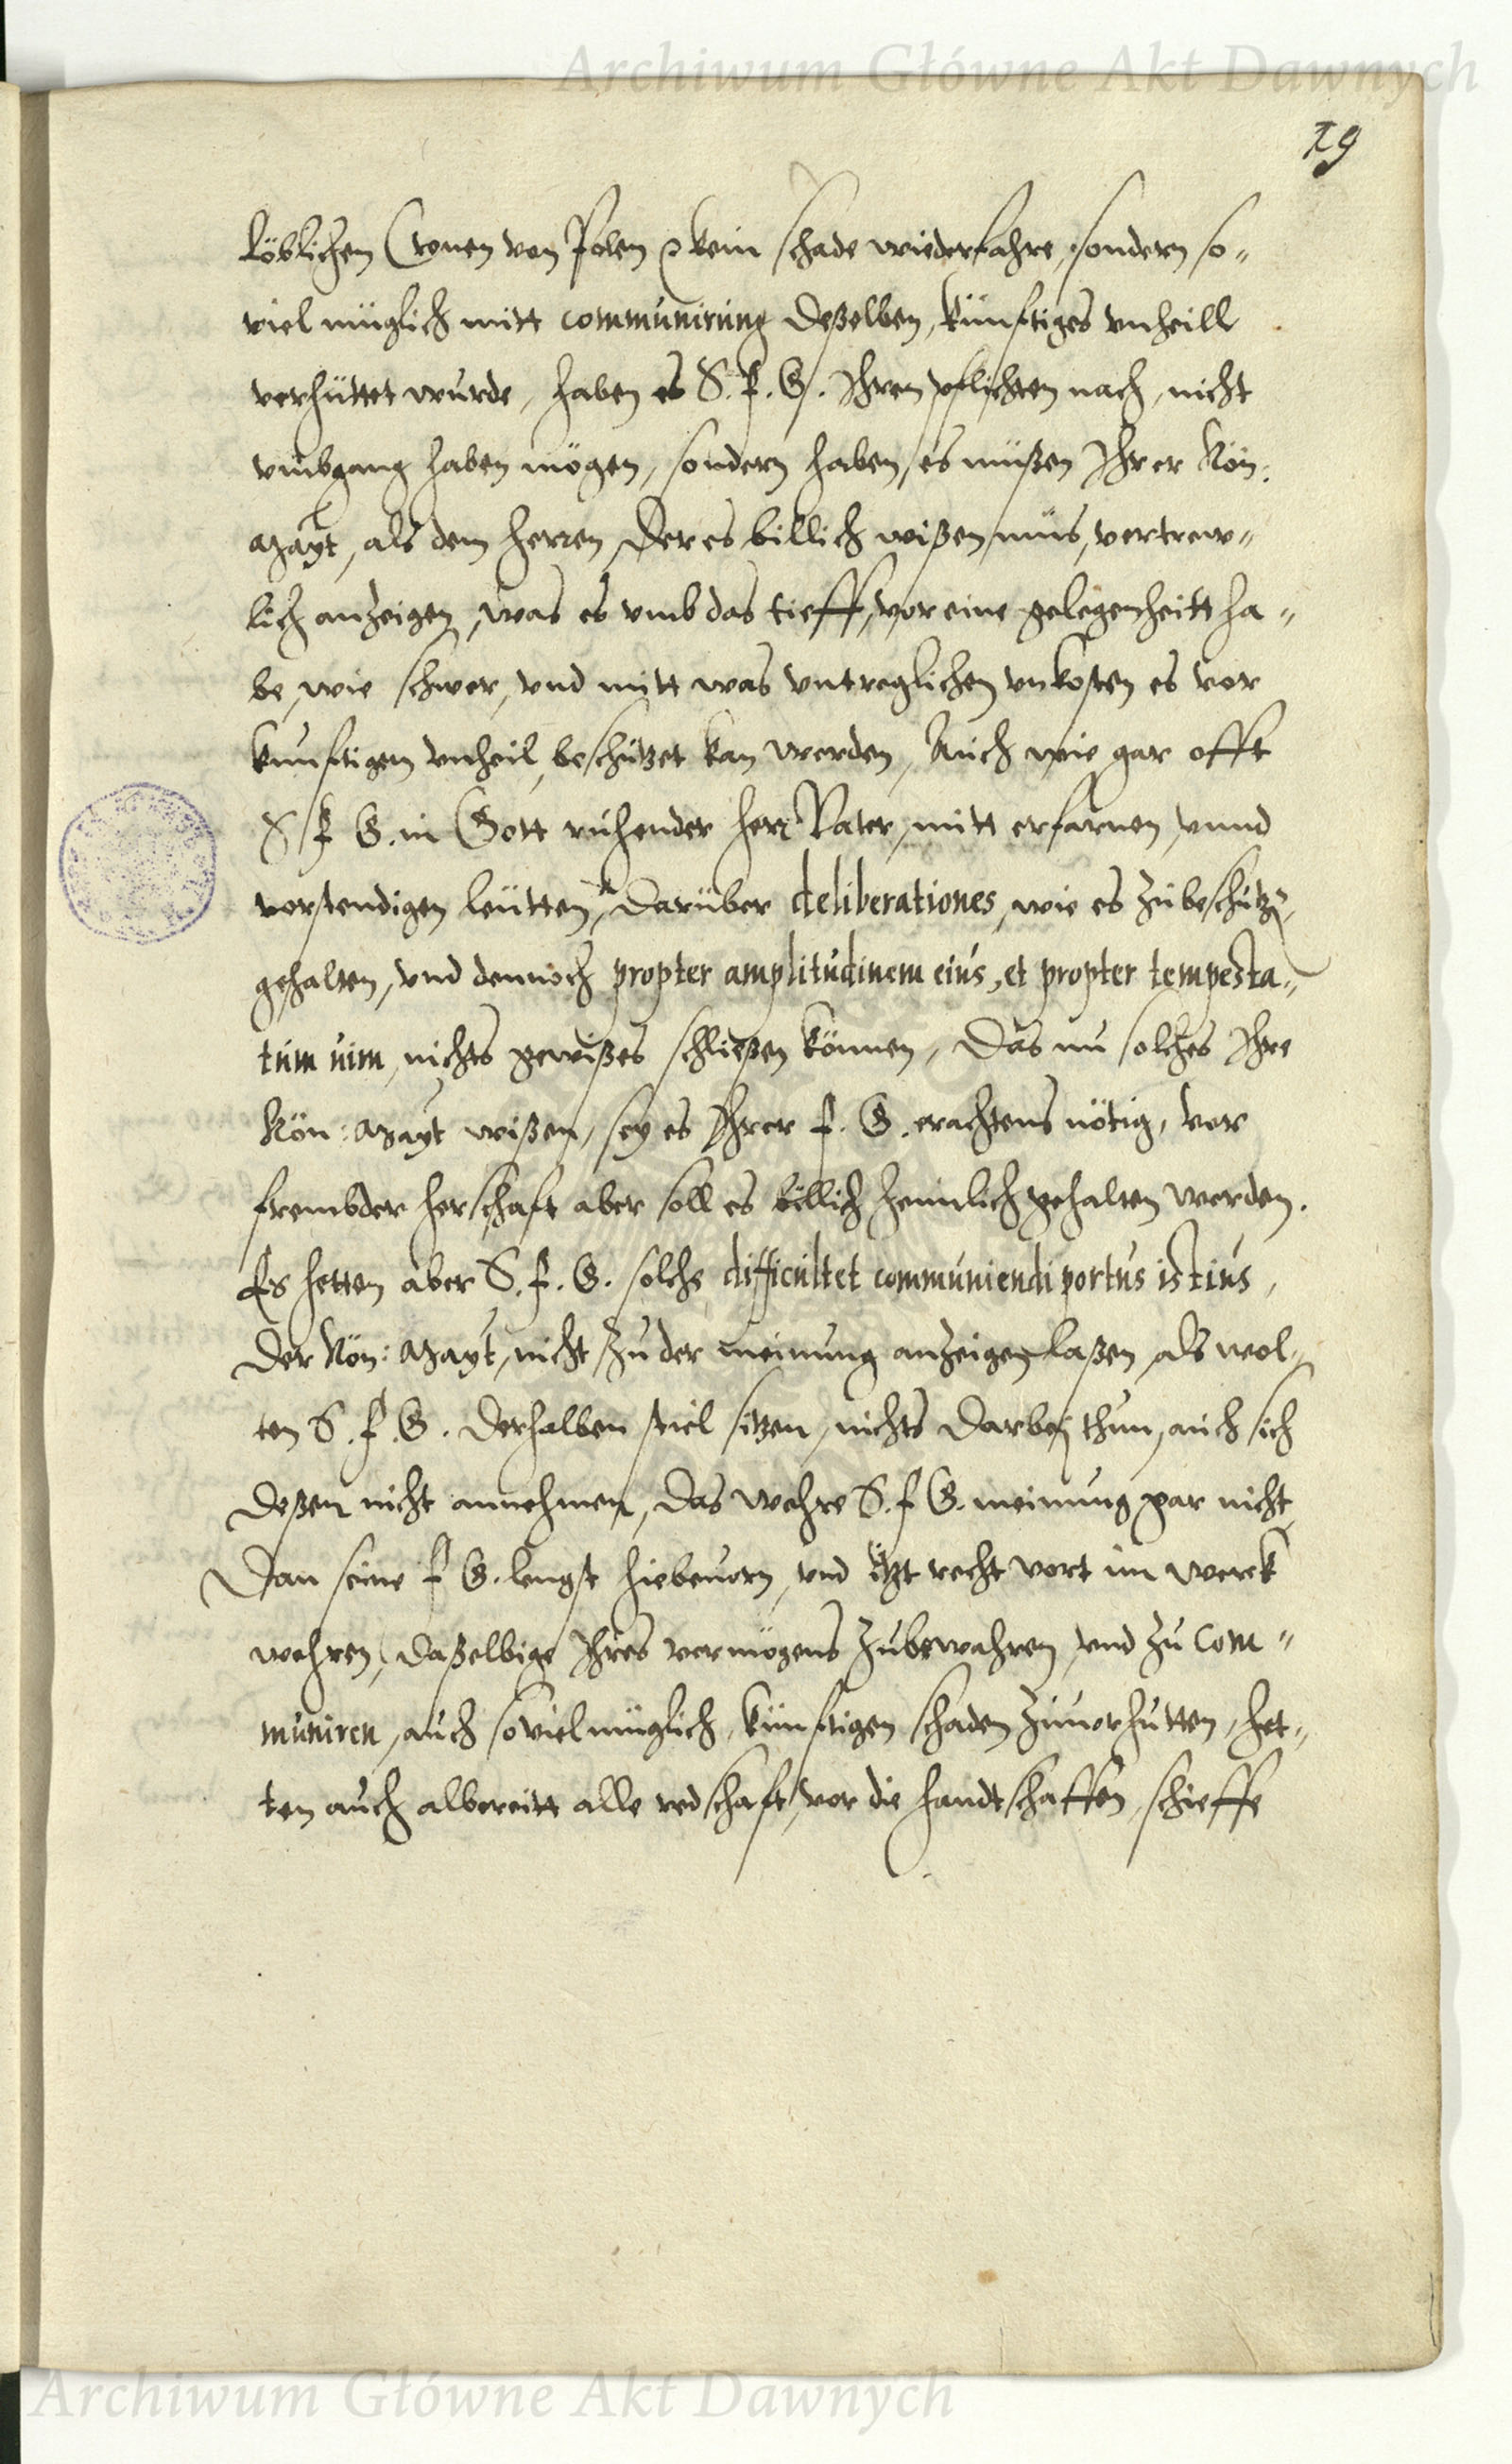 Archiwum Główne Akt Dawnych
19
löblichen Cronen von Polen kein schade wiederfahre, sondern so-
viel müglich mitt communirung deßelben, künftiges vnheill
verhüttet wurde, haben es S. F. G. Ihren pflichten nach, nicht
vmbgang haben mögen, sondern haben es müßen Ihrer Kön.
Mayt, als dem herren der es billich wißen mus, vertrew-
lich anzeigen, was es vmb das tieff, vor eine gelegenheitt ha-
be, wie schwer, vnd mitt was vntreglichen vnkosten es vor
kunftigem vnheil, beschützet kan werden, Auch wie gar offt
S F G. in Gott ruhender herr Vater, mitt erfarnen, vnnd
vorstendigen leütten, darüber deliberationes, wie es zubeschütz
gehalten, vnd dennoch propter amplitudinem eius, et propter tempesta-
tum uim, nichts gewißes schließen können, Das nu solches Ihre
Kön: Mayt wißen, sey es Ihrer F. G. erachtens nötig, vor
frembder herschaft aber soll es billich heimlich gehalten werden.
Es hetten aber S. F. G. solche difficultet communiendi portus istius,
der Kön: Mayt, nicht zu der meinung anzeigen laßen, als wol-
ten S. F. G. derhalben stiel sitzen, nichts darbej thun, auch sich
deßen nicht annehmen, das wehre S. F G. meinung gar nicht,
Dan seine F G. lengst hiebeuorn, vnd itzt recht vort im werck
wehren, daßelbige Ihres vermögens zubewahren, vnd zu com-
muniren, auch soviel müglich, künftigen schaden zuuorhutten, het-
ten auch albereitt alle redschaft, vor die handt schaffen, schieffe
Archiwum Główne Akt Dawnych